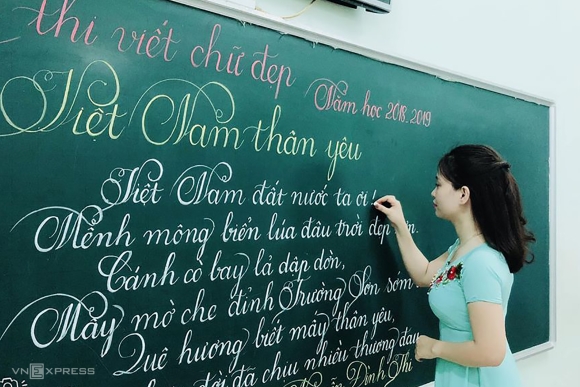 thi viết chữ đẹp
Năm học 2018-2019
Việt Nam thân yêu
Việt Nam đất nước ta ơi!
Mênh mông biển lúa đâu trời đẹp hơn.
Cánh cò bay lả dập dờn,
Mây mờ che đỉnh Trường Sơn sớm
Quê hương biết mấy thân yêu,
đời đã chịu nhiều thương đau
Đình Thi
VNEXPRESS